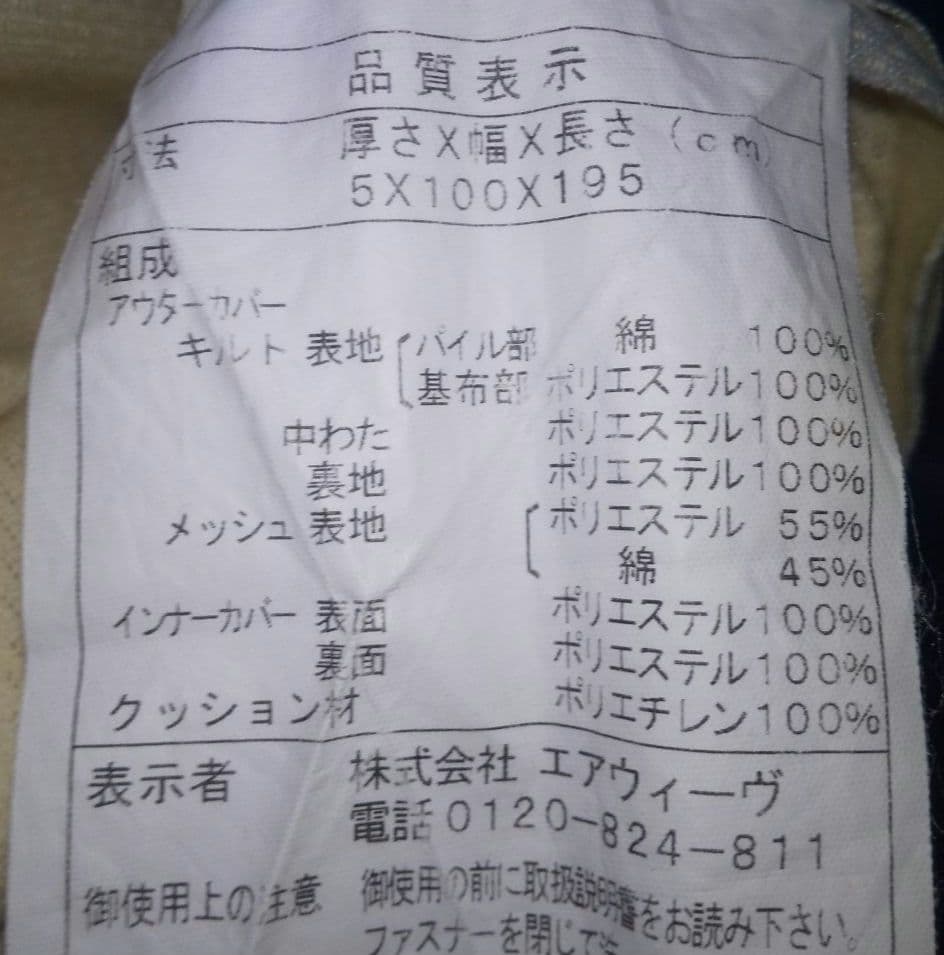 品質表示
寸法 厚さX幅X長さ(cm)
5X100X195
組成
アウターカバー
キルト 表地 パイル部 綿 100%
基布部 ポリエステル100%
中わた ポリエステル100%
裏地 ポリエステル100%
メッシュ 表地 ポリエステル 55%
綿 45%
インナーカバー 表面 ポリエステル100%
裏面 ポリエステル100%
クッション材 ポリエチレン100%
表示者 株式会社 エアウィーヴ
電話0120-824-811
御使用上の注意 御使用の前に取扱説明書をお読み下さい。
ファスナーを閉じて